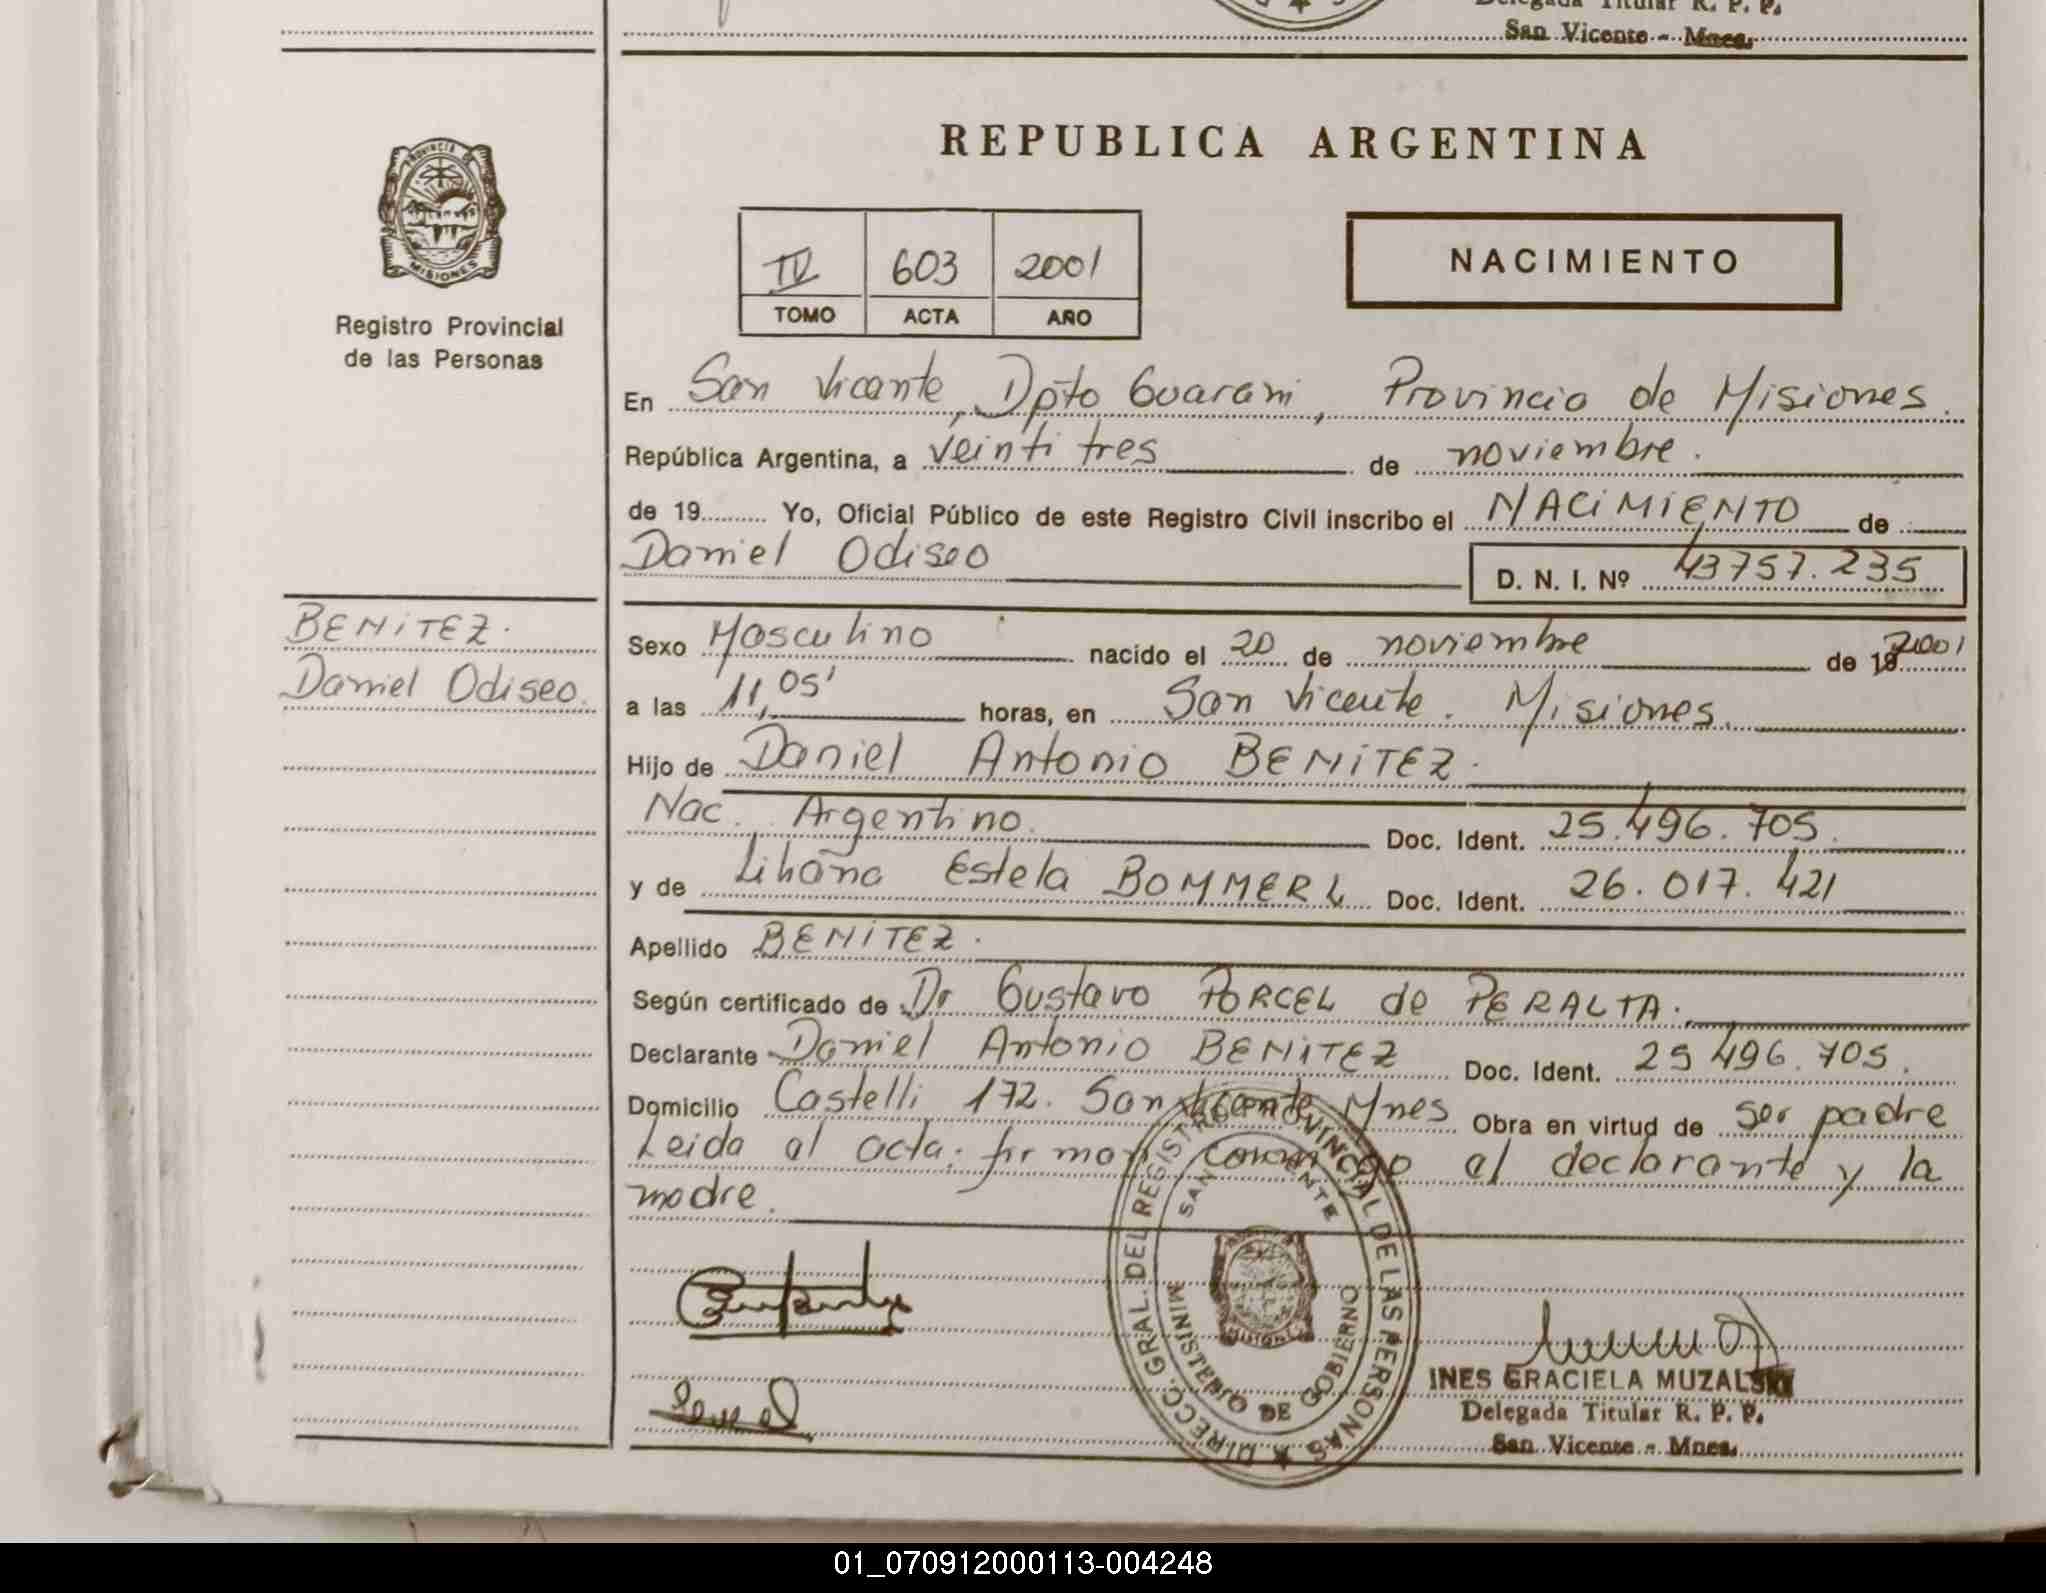 Delegada Titular R. P. P.
San Vicente - Mnes.
PROVINCIA DE
MISIONES
Registro Provincial
de las Personas
REPUBLICA ARGENTINA
IV 603 2001
TOMO ACTA AÑO
NACIMIENTO
En San Vicente, Dpto Guarani, Provincia de Misiones.
República Argentina, a veintitres de noviembre.
de 19.......... Yo, Oficial Público de este Registro Civil inscribo el NACIMIENTO de
Daniel Odiseo D. N. I. Nº 43757.235
BENITEZ.
Daniel Odiseo.
Sexo Masculino nacido el 20 de noviembre de 19 2001
a las 11,05' horas, en San Vicente. Misiones.
Hijo de Daniel Antonio BENITEZ.
Nac. Argentino. Doc. Ident. 25.496.705.
y de Liliana Estela BOMMERL Doc. Ident. 26.017.421
Apellido BENITEZ.
Según certificado de Dr Gustavo PORCEL de PERALTA.
Declarante Daniel Antonio BENITEZ Doc. Ident. 25 496.705.
Domicilio Castelli 172. San Vicente Mnes Obra en virtud de ser padre
Leida al acta. firman conmigo al declarante y la
madre.
DIRECC. GRAL. DEL REGISTRO PROVINCIAL DE LAS PERSONAS
SAN VICENTE
MISIONES
MINISTERIO DE GOBIERNO
INES GRACIELA MUZALSKI
Delegada Titular R. P. P.
San Vicente - Mnes.
01_070912000113-004248